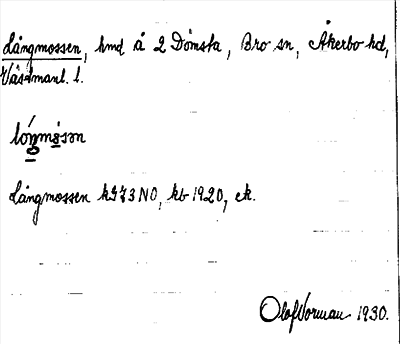 Långmossen, hmd å 2 Dömsta, Bro sn, Åkerbo hd,
Västmanl. l.
lóŋmåsən
Långmossen hS73NO, kb 1920, ek.
Olof Norman 1930.